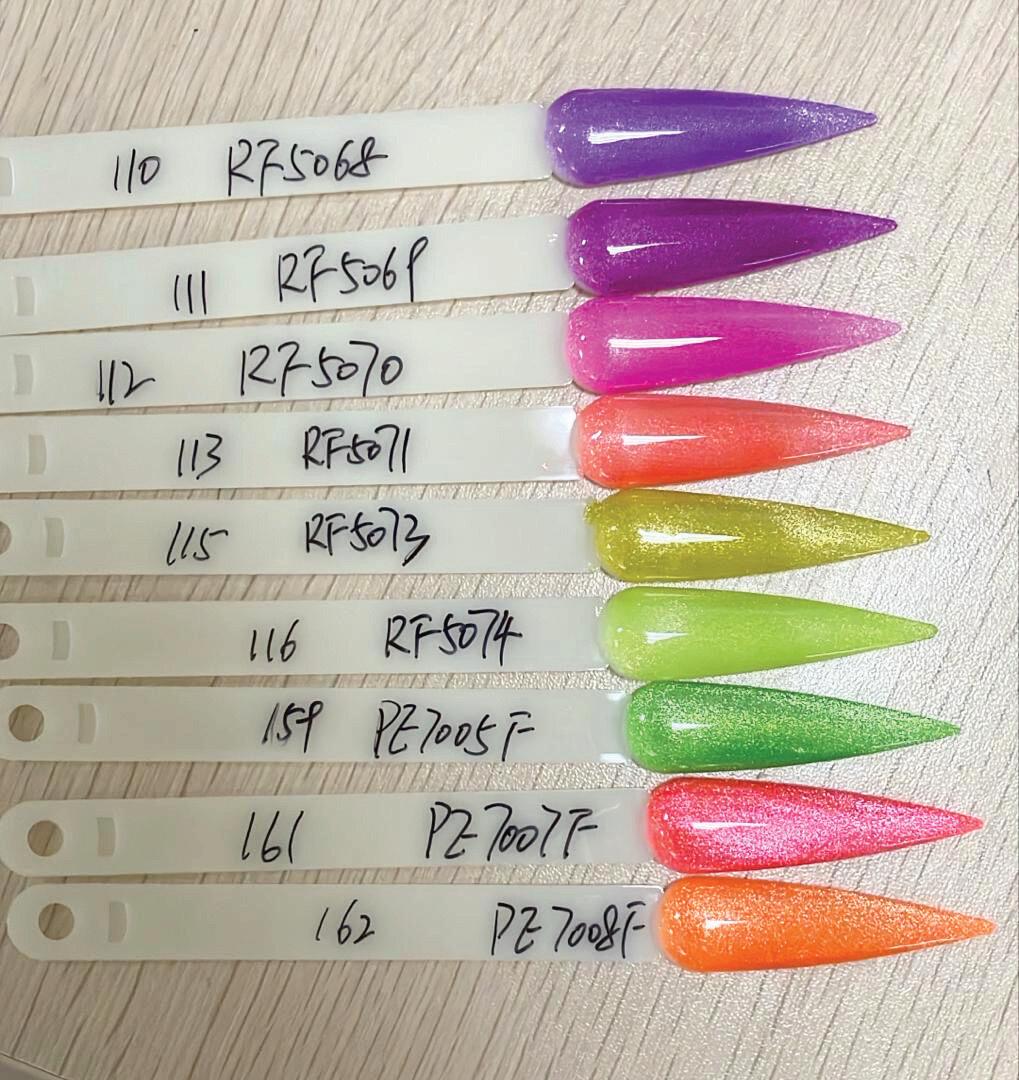 110 RF5068
111 RF5069
112 RF5070
113 RF5071
115 RF5073
116 RF5074
159 PE7005F
161 PE7007F
162 PE7008F